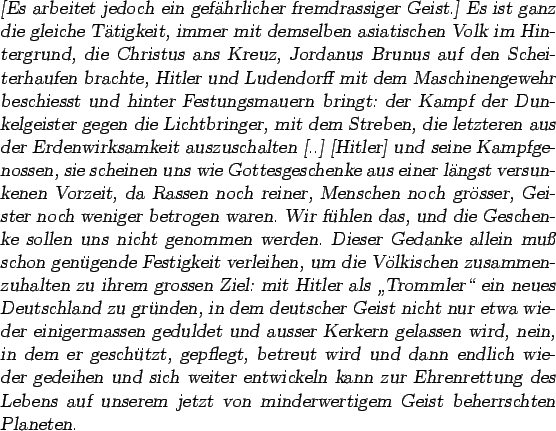 [Es arbeitet jedoch ein gefährlicher fremdrassiger Geist.] Es ist ganz
die gleiche Tätigkeit, immer mit demselben asiatischen Volk im Hin-
tergrund, die Christus ans Kreuz, Jordanus Brunus auf den Schei-
terhaufen brachte, Hitler und Ludendorff mit dem Maschinengewehr
beschiesst und hinter Festungsmauern bringt: der Kampf der Dun-
kelgeister gegen die Lichtbringer, mit dem Streben, die letzteren aus
der Erdenwirksamkeit auszuschalten [..] [Hitler] und seine Kampfge-
nossen, sie scheinen uns wie Gottesgeschenke aus einer längst versun-
kenen Vorzeit, da Rassen noch reiner, Menschen noch grösser, Gei-
ster noch weniger betrogen waren. Wir fühlen das, und die Geschen-
ke sollen uns nicht genommen werden. Dieser Gedanke allein muß
schon genügende Festigkeit verleihen, um die Völkischen zusammen-
zuhalten zu ihrem grossen Ziel: mit Hitler als „Trommler“ ein neues
Deutschland zu gründen, in dem deutscher Geist nicht nur etwa wie-
der einigermassen geduldet und ausser Kerkern gelassen wird, nein,
in dem er geschützt, gepflegt, betreut wird und dann endlich wie-
der gedeihen und sich weiter entwickeln kann zur Ehrenrettung des
Lebens auf unserem jetzt von minderwertigem Geist beherrschten
Planeten.